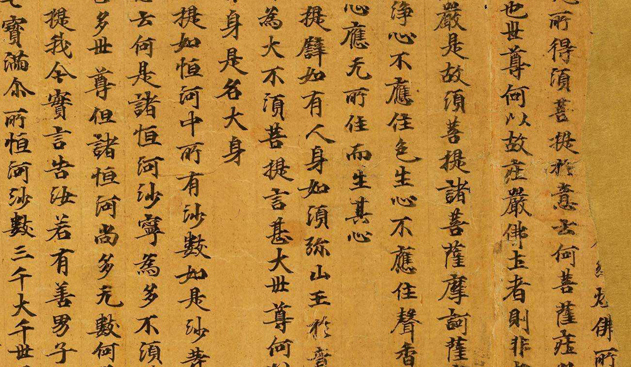 佛所
无所得須菩提於意云何菩薩莊
也世尊何以故庄嚴佛土者則非
嚴是故須菩提諸菩薩摩訶薩
淨心不應住色生心不應住聲香
心應无所住而生其心
提譬如有人身如須弥山王於意
為大不須菩提言甚大世尊何
身是名大身
提如恒河中所有沙數如是沙等
云何是諸恒河沙寧為多不須
多世尊但諸恒河尚多无數何
提我今實言告汝若有善男子
七寶滿尒所恒河沙數三千大千世